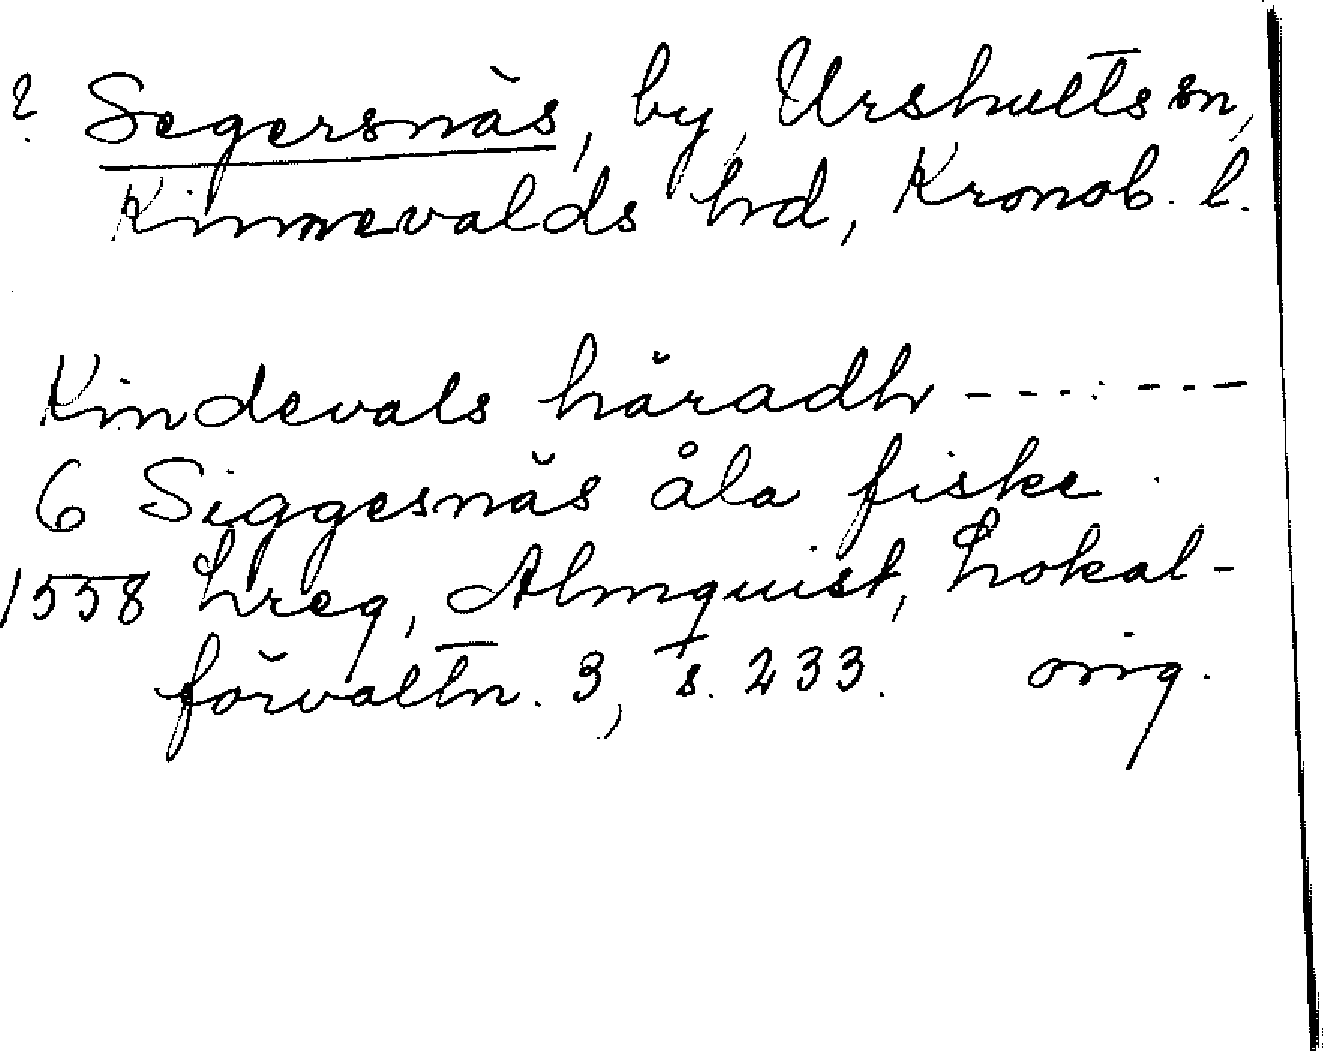 ? Segersnäs, by, Urshults sn,
Kinnevalds hrd, Kronob. l.
Kindevals häradh - - - - - - -
6 Siggesnäs åla fiske
1558 Lreg, Almquist, Lokal-
förvaltn. 3, s. 233. orig.